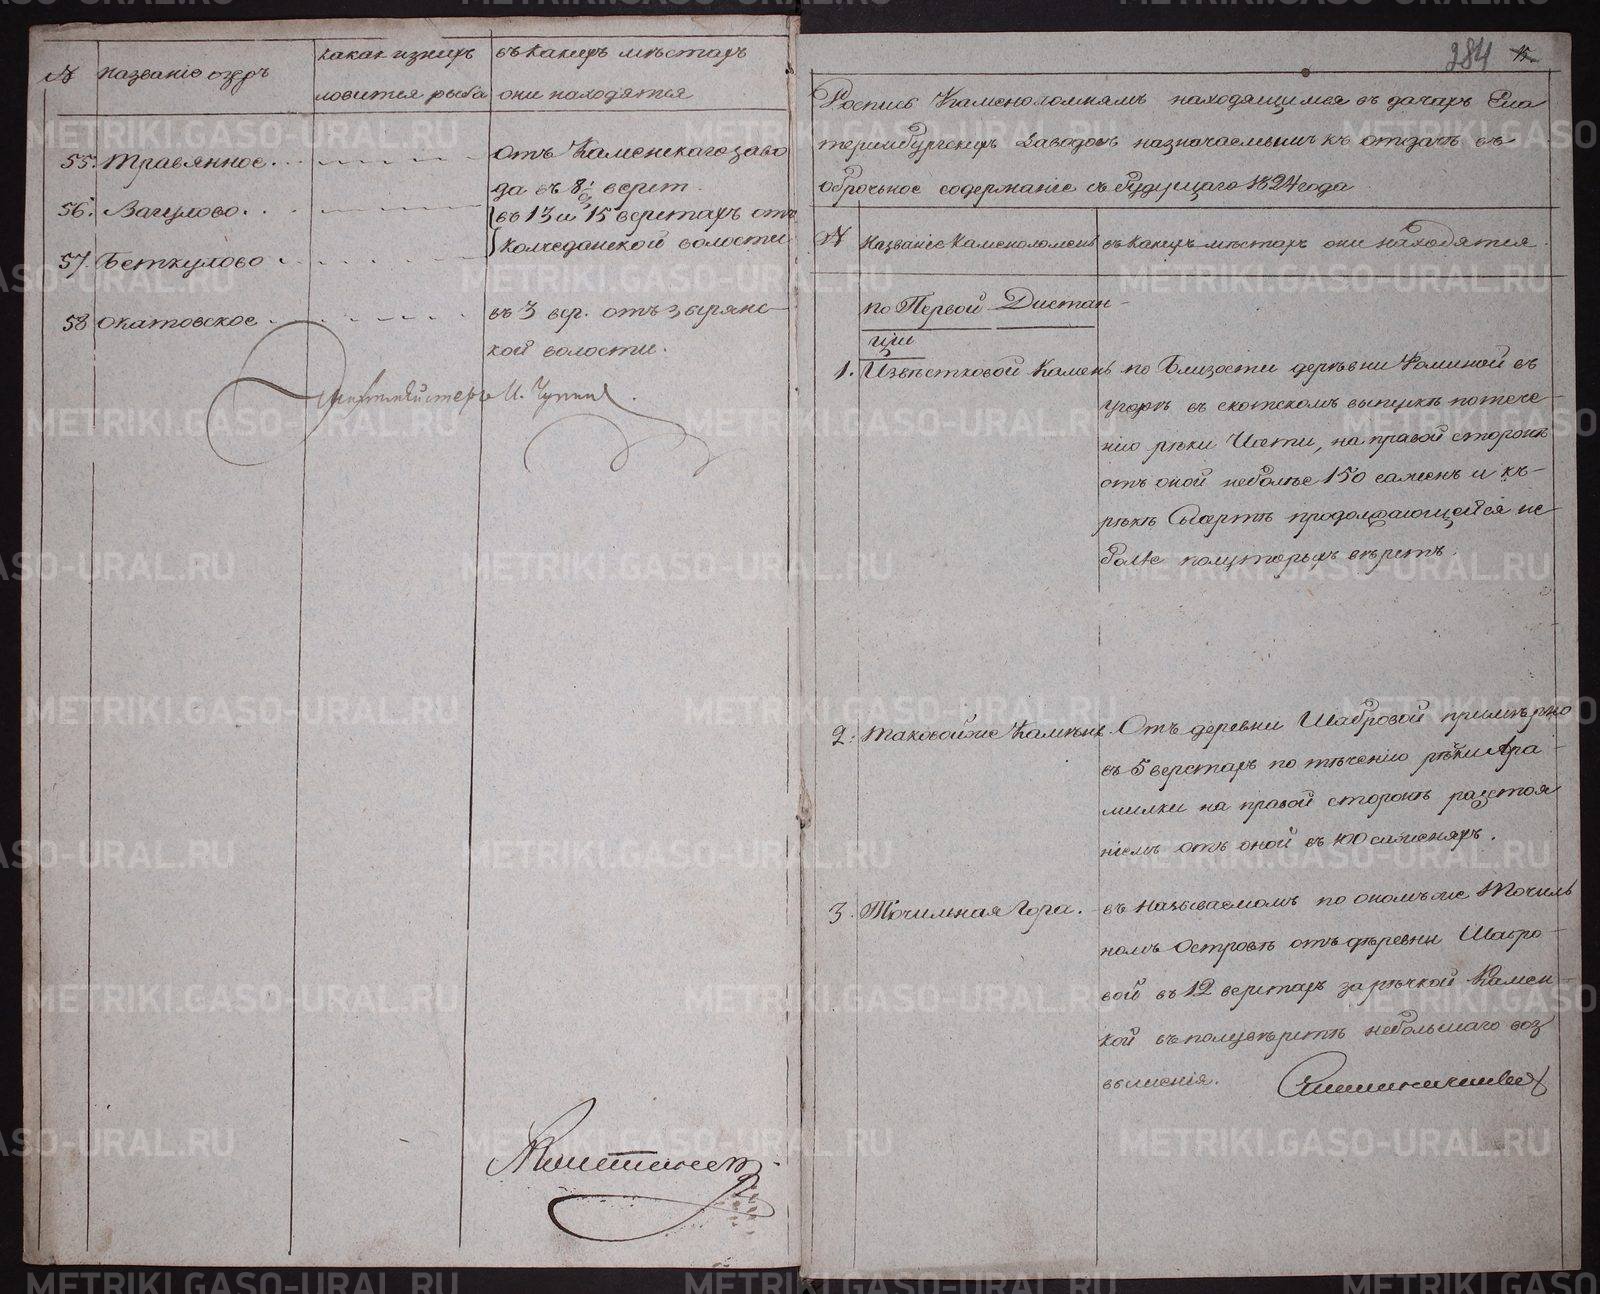 №
Названіе озеръ
какая изнихъ
ловится рыба
въ какихъ мѣстахъ
они находятся
55. Травянное.
отъ Каменскаго заво
да въ 8 верст.
56. Вагулово.
въ 13 и 15 верстахъ отъ
Колчеданской волости
57. Беткулово
58 Окатовское
въ 3 вер. отъ Зырянс-
кой волости.
И. Чупинъ.
284
Роспись Каменоломнямъ находящимся въ дачахъ Ека
теринбургскихъ Заводовъ назначаемымъ къ отдачѣ въ
оброчьное содержаніе съ будущаго 1824 года
№
Названіе Каменоломень
въ какихъ мѣстахъ они находятся.
по Первой Дистан-
ціи
1. Извѣстковой Камень
по близости деревни Фоминой въ
угорѣ въ скотскомъ выпускѣ потече-
нію рѣки Исети, на правой сторонѣ
отъ оной неболѣе 150 сажень и къ-
рѣкѣ Сысертѣ продолжающейся не
болѣе полуторыхъ верстъ.
2. таковойже Камень.
Отъ деревни Шабровой примѣрно
въ 5 верстахъ по тѣченію рѣчки Ара-
милки на правой сторонѣ разстоя
ніемъ отъ оной въ 100 саженяхъ.
3. Точильная Гора.
въ называемомъ по ономъже Точиль
номъ Островѣ отъ деревни Шабро-
вой въ 12 верстахъ за рѣчкой Камен-
кой въ полуверстѣ небольшаго воз
вышенія.
METRIKI.GASO-URAL.RU